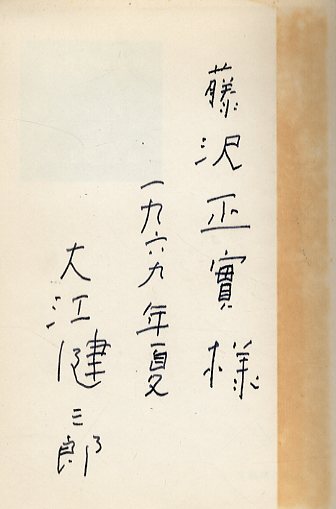 藤沢正實様
一九六九年夏
大江健三郎